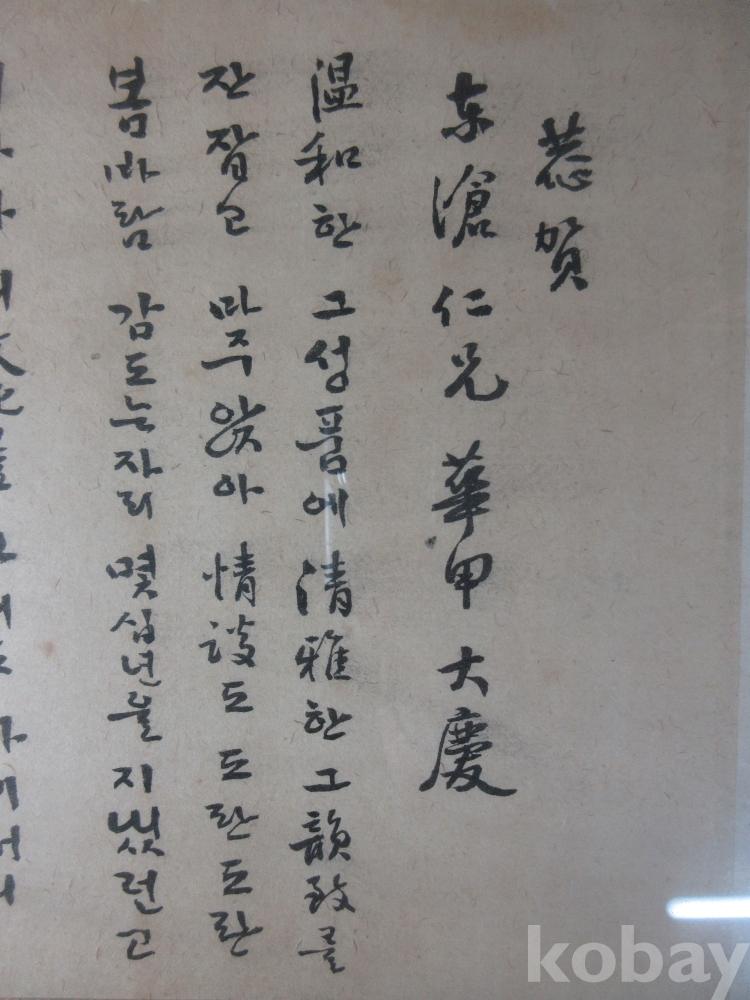 恭賀
東滄仁兄 華甲 大慶
温和한 그성품에 清雅한 그韻致를
잔 잡고 마주 앉아 情談도 도란도란
봄바람 감도는자리 몇십년을 지냈런고
kobay